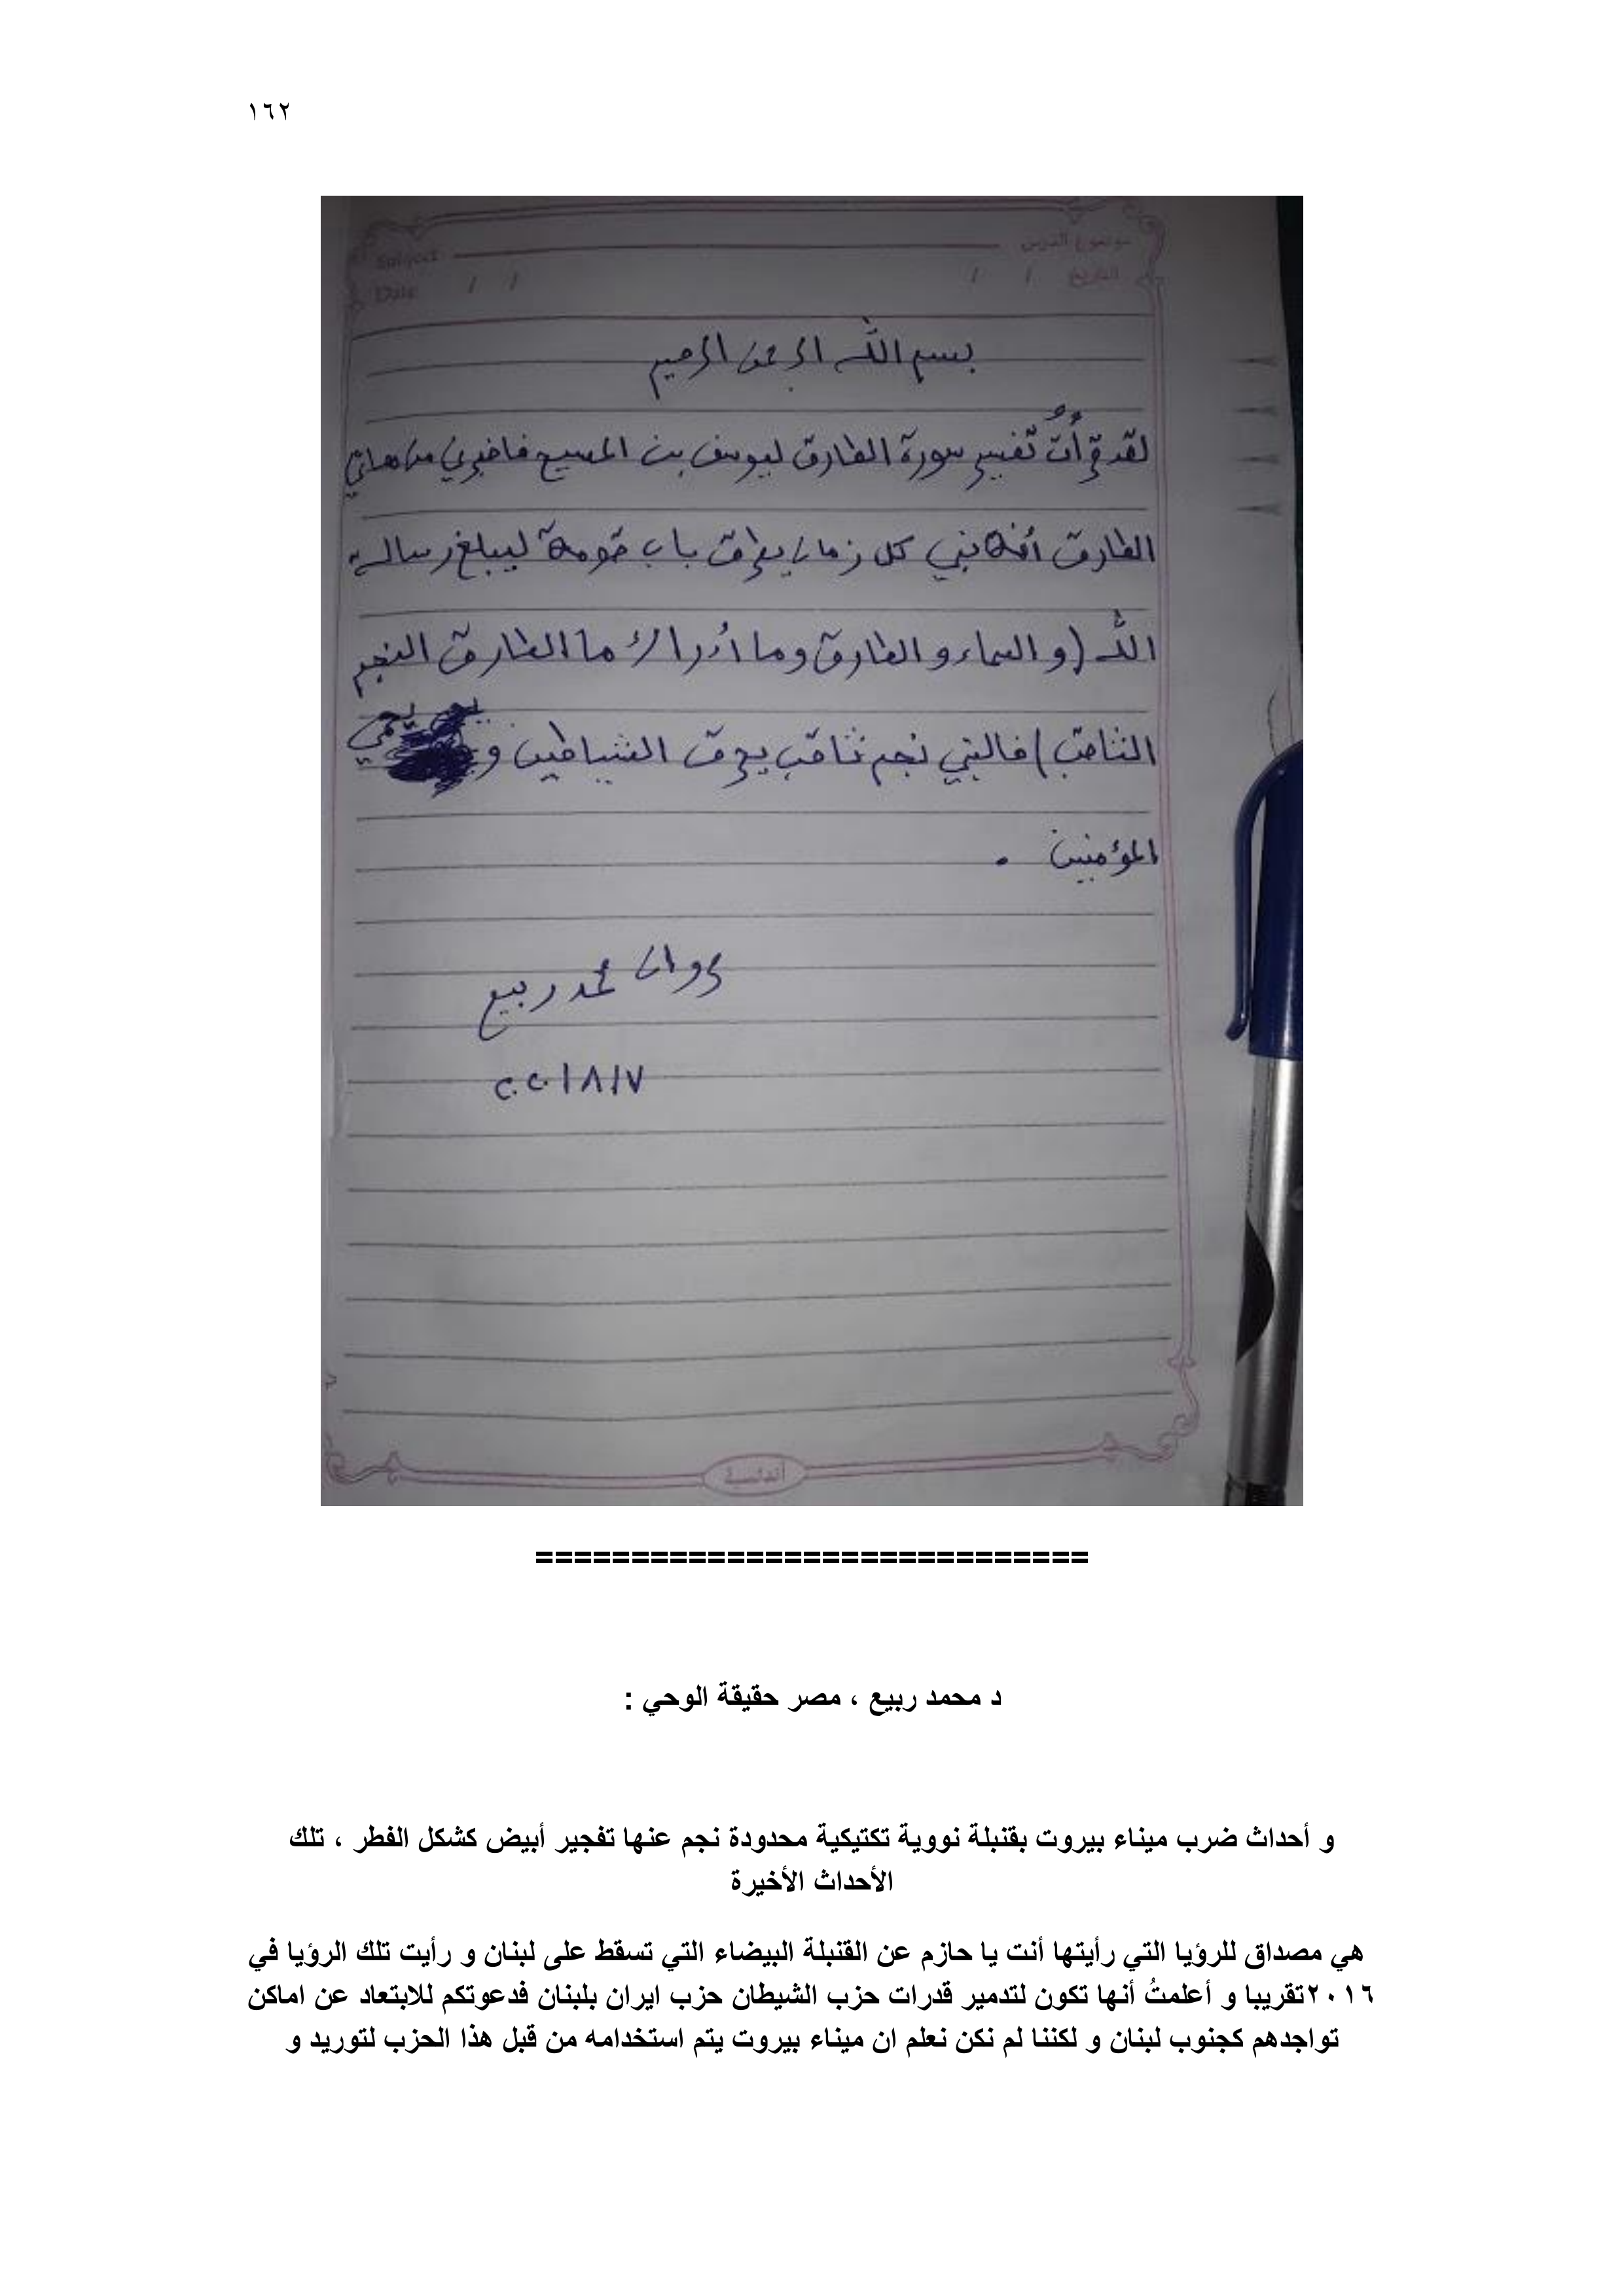 ١٦٢
موضوع الدرس Subject
التاريخ / / Date / /
بسم الله الرحمن الرحيم
لقد قرأتُ تفسير سورة الطارق ليوسف بن المسيح فاخبرني من معاني
الطارق أنه نبي كل زمان يطرق باب قومه ليبلغ رسالة
الله (و السماء و الطارق وما أدراك ما الطارق النجم
الثاقب) فالنبي نجم ثاقب يحرق الشياطين و يحمي
المؤمنين .
مروان محمد ربيع
٢٠٢٠/٨/٧
أندلسية
=============================
د محمد ربيع ، مصر حقيقة الوحي :
و أحداث ضرب ميناء بيروت بقنبلة نووية تكتيكية محدودة نجم عنها تفجير أبيض كشكل الفطر ، تلك
الأحداث الأخيرة
هي مصداق للرؤيا التي رأيتها أنت يا حازم عن القنبلة البيضاء التي تسقط على لبنان و رأيت تلك الرؤيا في
٢٠١٦تقريبا و أعلمتُ أنها تكون لتدمير قدرات حزب الشيطان حزب ايران بلبنان فدعوتكم للابتعاد عن اماكن
تواجدهم كجنوب لبنان و لكننا لم نكن نعلم ان ميناء بيروت يتم استخدامه من قبل هذا الحزب لتوريد و